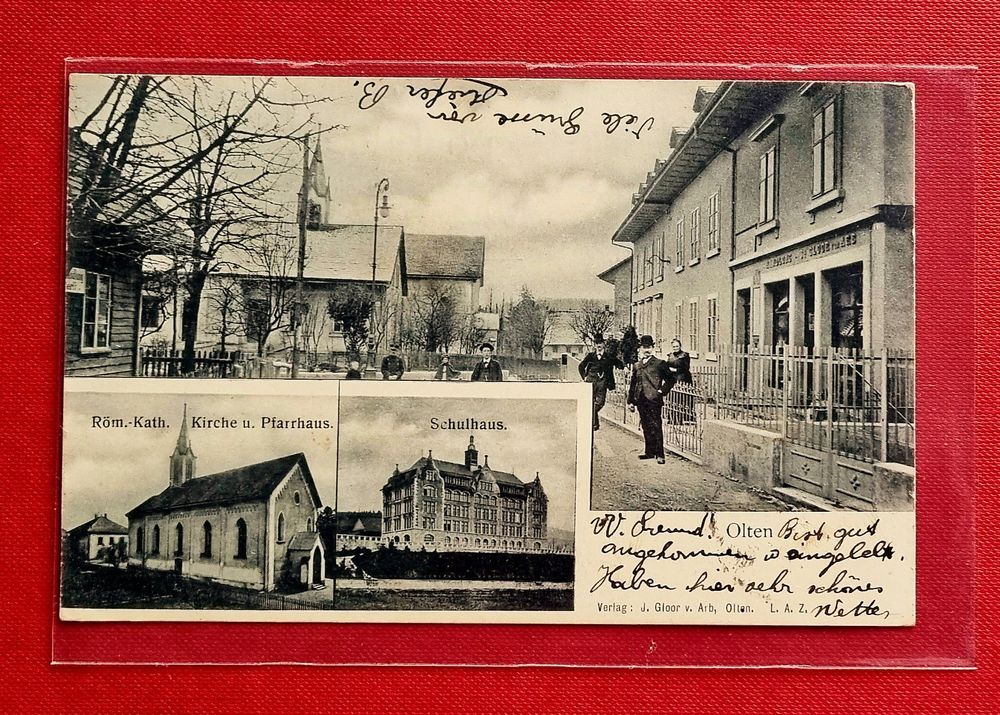 Viele Grüsse von
B.
Röm.-Kath. Kirche u. Pfarrhaus.
Schulhaus.
W. Freund! Olten Bist gut
angekommen u eingelebt.
Haben hier sehr schönes
Wetter
Verlag: J. Gloor v. Arb, Olten. L. A. Z.